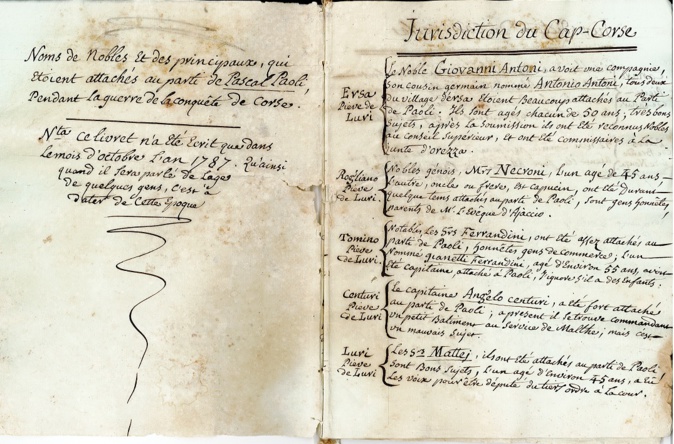 Noms de Nobles Et des principaux, qui
Etoient attachés au parti de Pascal Paoli
Pendant la guerre de la conquête de Corse.
Nta ce livret n'a été Ecrit que dans
le mois d'octobre L'an 1787. Qu'ainsi
quand il sera parlé de L'age
de quelques gens, c'est à
Dater de Cette Epoque
Jurisdiction du Cap-Corse
Ersa
Pieve de
Luri
Le Noble Giovanni Antoni, avoit une compagnies,
son cousin germain nommé Antonio Antoni, tous deux
du village d'ersa etoient Beaucoup attachés au Parti
de Paoli. Ils sont agés chacun de 50 ans, très bons
sujets, après la soumission ils ont été reconnus Nobles
au conseil Superieur, Et ont été commissaires a la
junte d'orezza.
Rogliano
Piève
de Luri
Nobles genois, Mrs Necroni, L'un agé de 45 ans
L'autre, oncle ou frere, Est capucin, ont été Durant
quelque tems attachés au parti de Paoli, sont gens honnêtes,
parents de Mr L'Evêque d'Ajaccio.
Tomino
Piève
de Luri
Notables, Les Srs Ferrandini, ont été assez attachés au
parti de Paoli, honnêtes gens de commerce, L'un
nommé gianetti Ferrandini, agé d'Environ 55 ans, avoit
été capitaine attaché à Paoli, J'ignore s'il a des Enfants.
Centuri
Pieve
de Luri
Le capitaine Angelo centuri, a été fort attaché
au parti de Paoli, a present il se trouve commandant
un petit Batiment au Service de Malthe; mais c'est
un mauvais sujet.
Luri
Pieve
de Luri
Les Srs Mattei, ils ont été attachés au parti de Paoli
sont Bons Sujets, L'un agé d'Environ 45 ans, a eu
Les voix pour être député du tiers ordre à la cour.